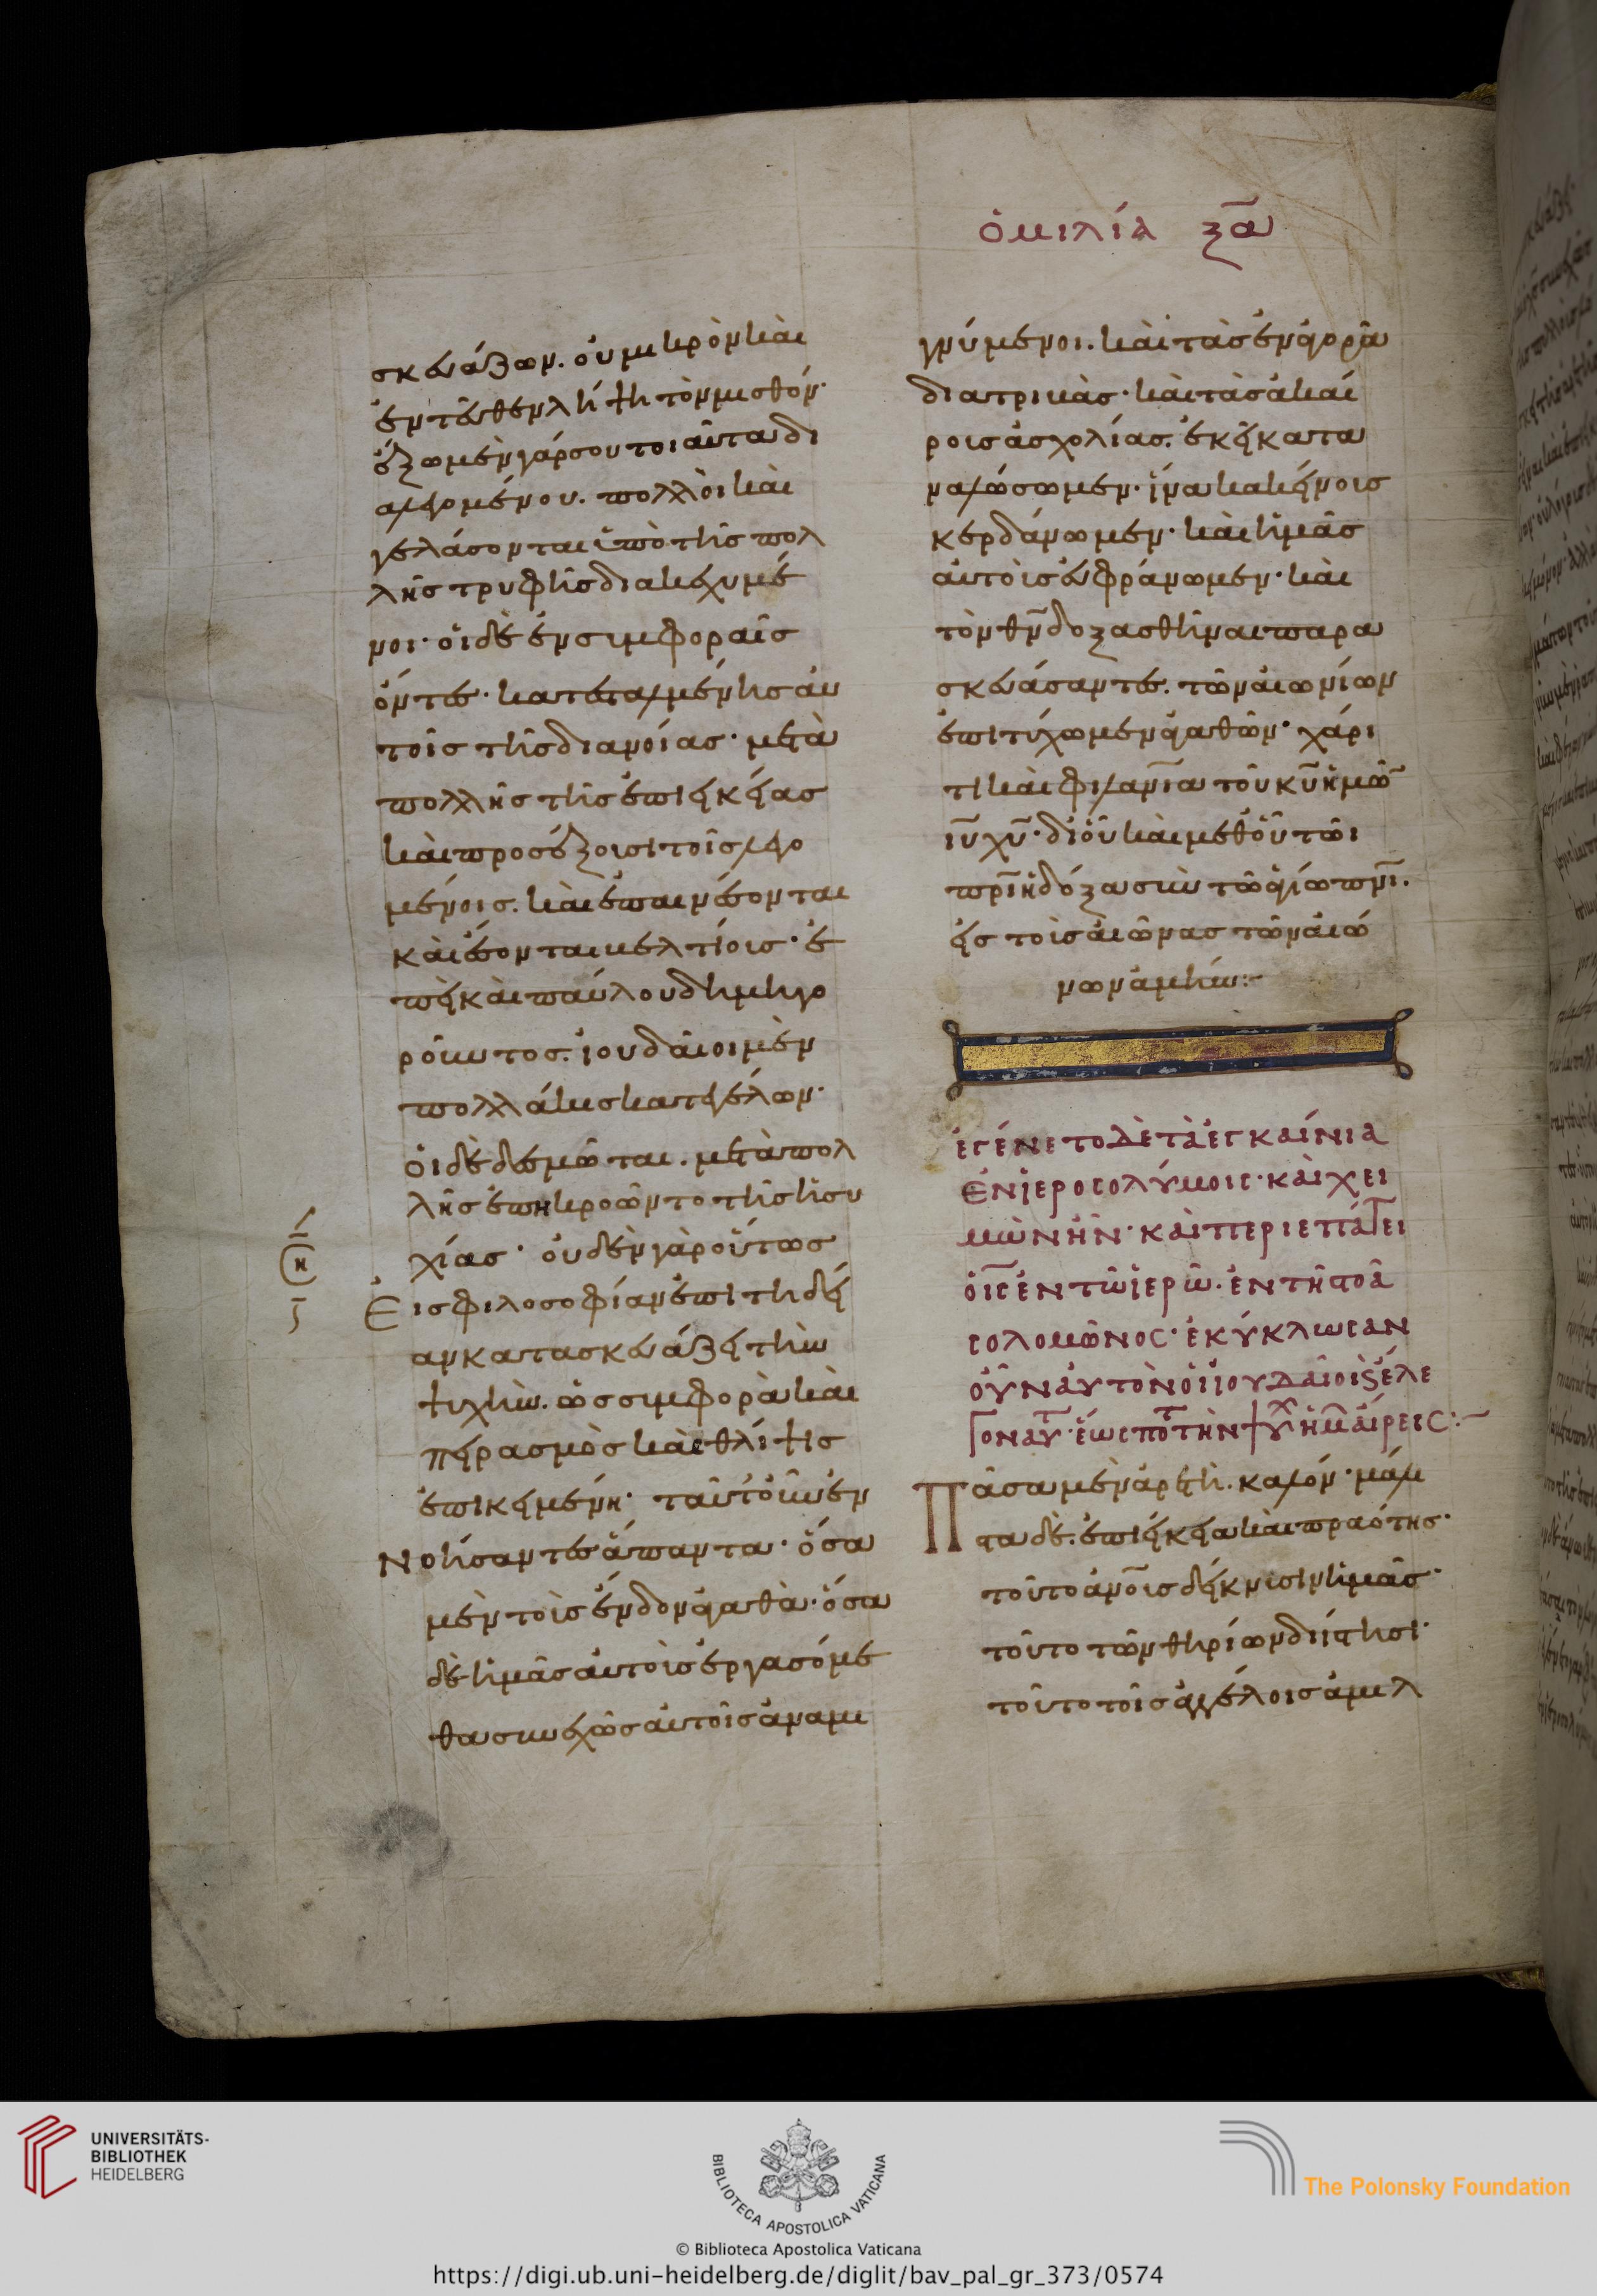 ὁμιλία ξα
σκευάζων. οὐ μικρὸν καὶ
ἐντεῦθεν λήψη τὸν μισθόν·
ὄζω μὲν γάρ σου τοιαῦτα δι
πολλοὶ καὶ
γελάσονται ὑπὸ τῆς πολ
λῆς τρυφῆς διακεχυμέ
νοι· οἱ δὲ ἐν συμφοραῖς
ὄντες· κατεσταλμένης αὐ
τοῖς τῆς διανοίας· μετὰ
πολλῆς τῆς ἐπιεικείας
καὶ προσέξουσι τοῖς λεγο
μένοις. καὶ ἐπαινέσονται
καὶ ἔσονται βελτίους· ἐ
πεὶ καὶ παύλου δημηγο
ροῦντος. ἰουδαῖοι μὲν
πολλάκις κατεγέλων·
οἱ δὲ δεσμῶται. μετὰ πολ
λῆς ἐπηκροῶντο τῆς ἡσυ
χίας· οὐδὲν γὰρ οὕτως
Εἰς φιλοσοφίαν ἐπιτηδεί
αν κατασκευάζει τὴν
ψυχὴν. ὡς συμφορὰ καὶ
πειρασμὸς καὶ θλίψις
ἐπικειμένη· ταῦτ' οὖν ἐν
Νοήσαντες ἅπαντα· ὅσα
μὲν τοῖς ἔνδον ἀγαθὰ· ὅσα
δὲ ἡμᾶς αὐτοὺς ἐργασόμε
θα συνεχῶς αὐτοῖς ἀναμι
γνύμενοι. καὶ τὰς ἐν ἀγορᾶ
διατριβὰς· καὶ τὰς ἀκαί
ρους ἀσχολίας. ἐκεῖ κατα
ναλώσωμεν· ἵνα κακείνους
κερδάνωμεν· καὶ ἡμᾶς
αὐτοὺς εὐφράνωμεν· καὶ
τὸν θν δοξασθῆναι παρα
σκευάσαντες. τῶν αἰωνίων
ἐπιτύχωμεν ἀγαθῶν· χάρι
τι καὶ φιλανια τοῦ κυ ἡμῶ
ιυ χυ· δι' οὗ καὶ μεθ' οὗ τῶι
πρι ἡ δόξα σὺν τῶ ἁγίω πνι.
εἰς τοὺς αἰῶνας τῶν αἰώ
νων ἀμήν:~
ἐγένετο δὲ τὰ ἐγκαίνια
Ἐν ἱεροσολύμοις· καὶ χει
μὼν ἦν· καὶ περιεπάτει
ὁ ις ἐν τῶ ἱερῶ. ἐν τῆ στοᾶ
σολομῶνος· ἐκύκλωσαν
οὖν αὐτὸν οἱ ἰουδαῖοι ϗ ἔλε
γον αὐτ· ἕως ποτ τὴν ψυχ ἡμ αἴρεις:~
Πᾶσα μὲν ἀρετὴ. καλόν· μάλι
στα δὲ. ἐπιείκεια καὶ πραότης·
τοῦτο ἀνους δείκνυσιν ἡμᾶς·
τοῦτο τῶν θηρίων διΐστησι·
τοῦτο τοῖς ἀγγέλοις ἁμιλ
UNIVERSITÄTS-
BIBLIOTHEK
HEIDELBERG
BIBLIOTECA APOSTOLICA VATICANA
The Polonsky Foundation
© Biblioteca Apostolica Vaticana
https://digi.ub.uni-heidelberg.de/diglit/bav_pal_gr_373/0574